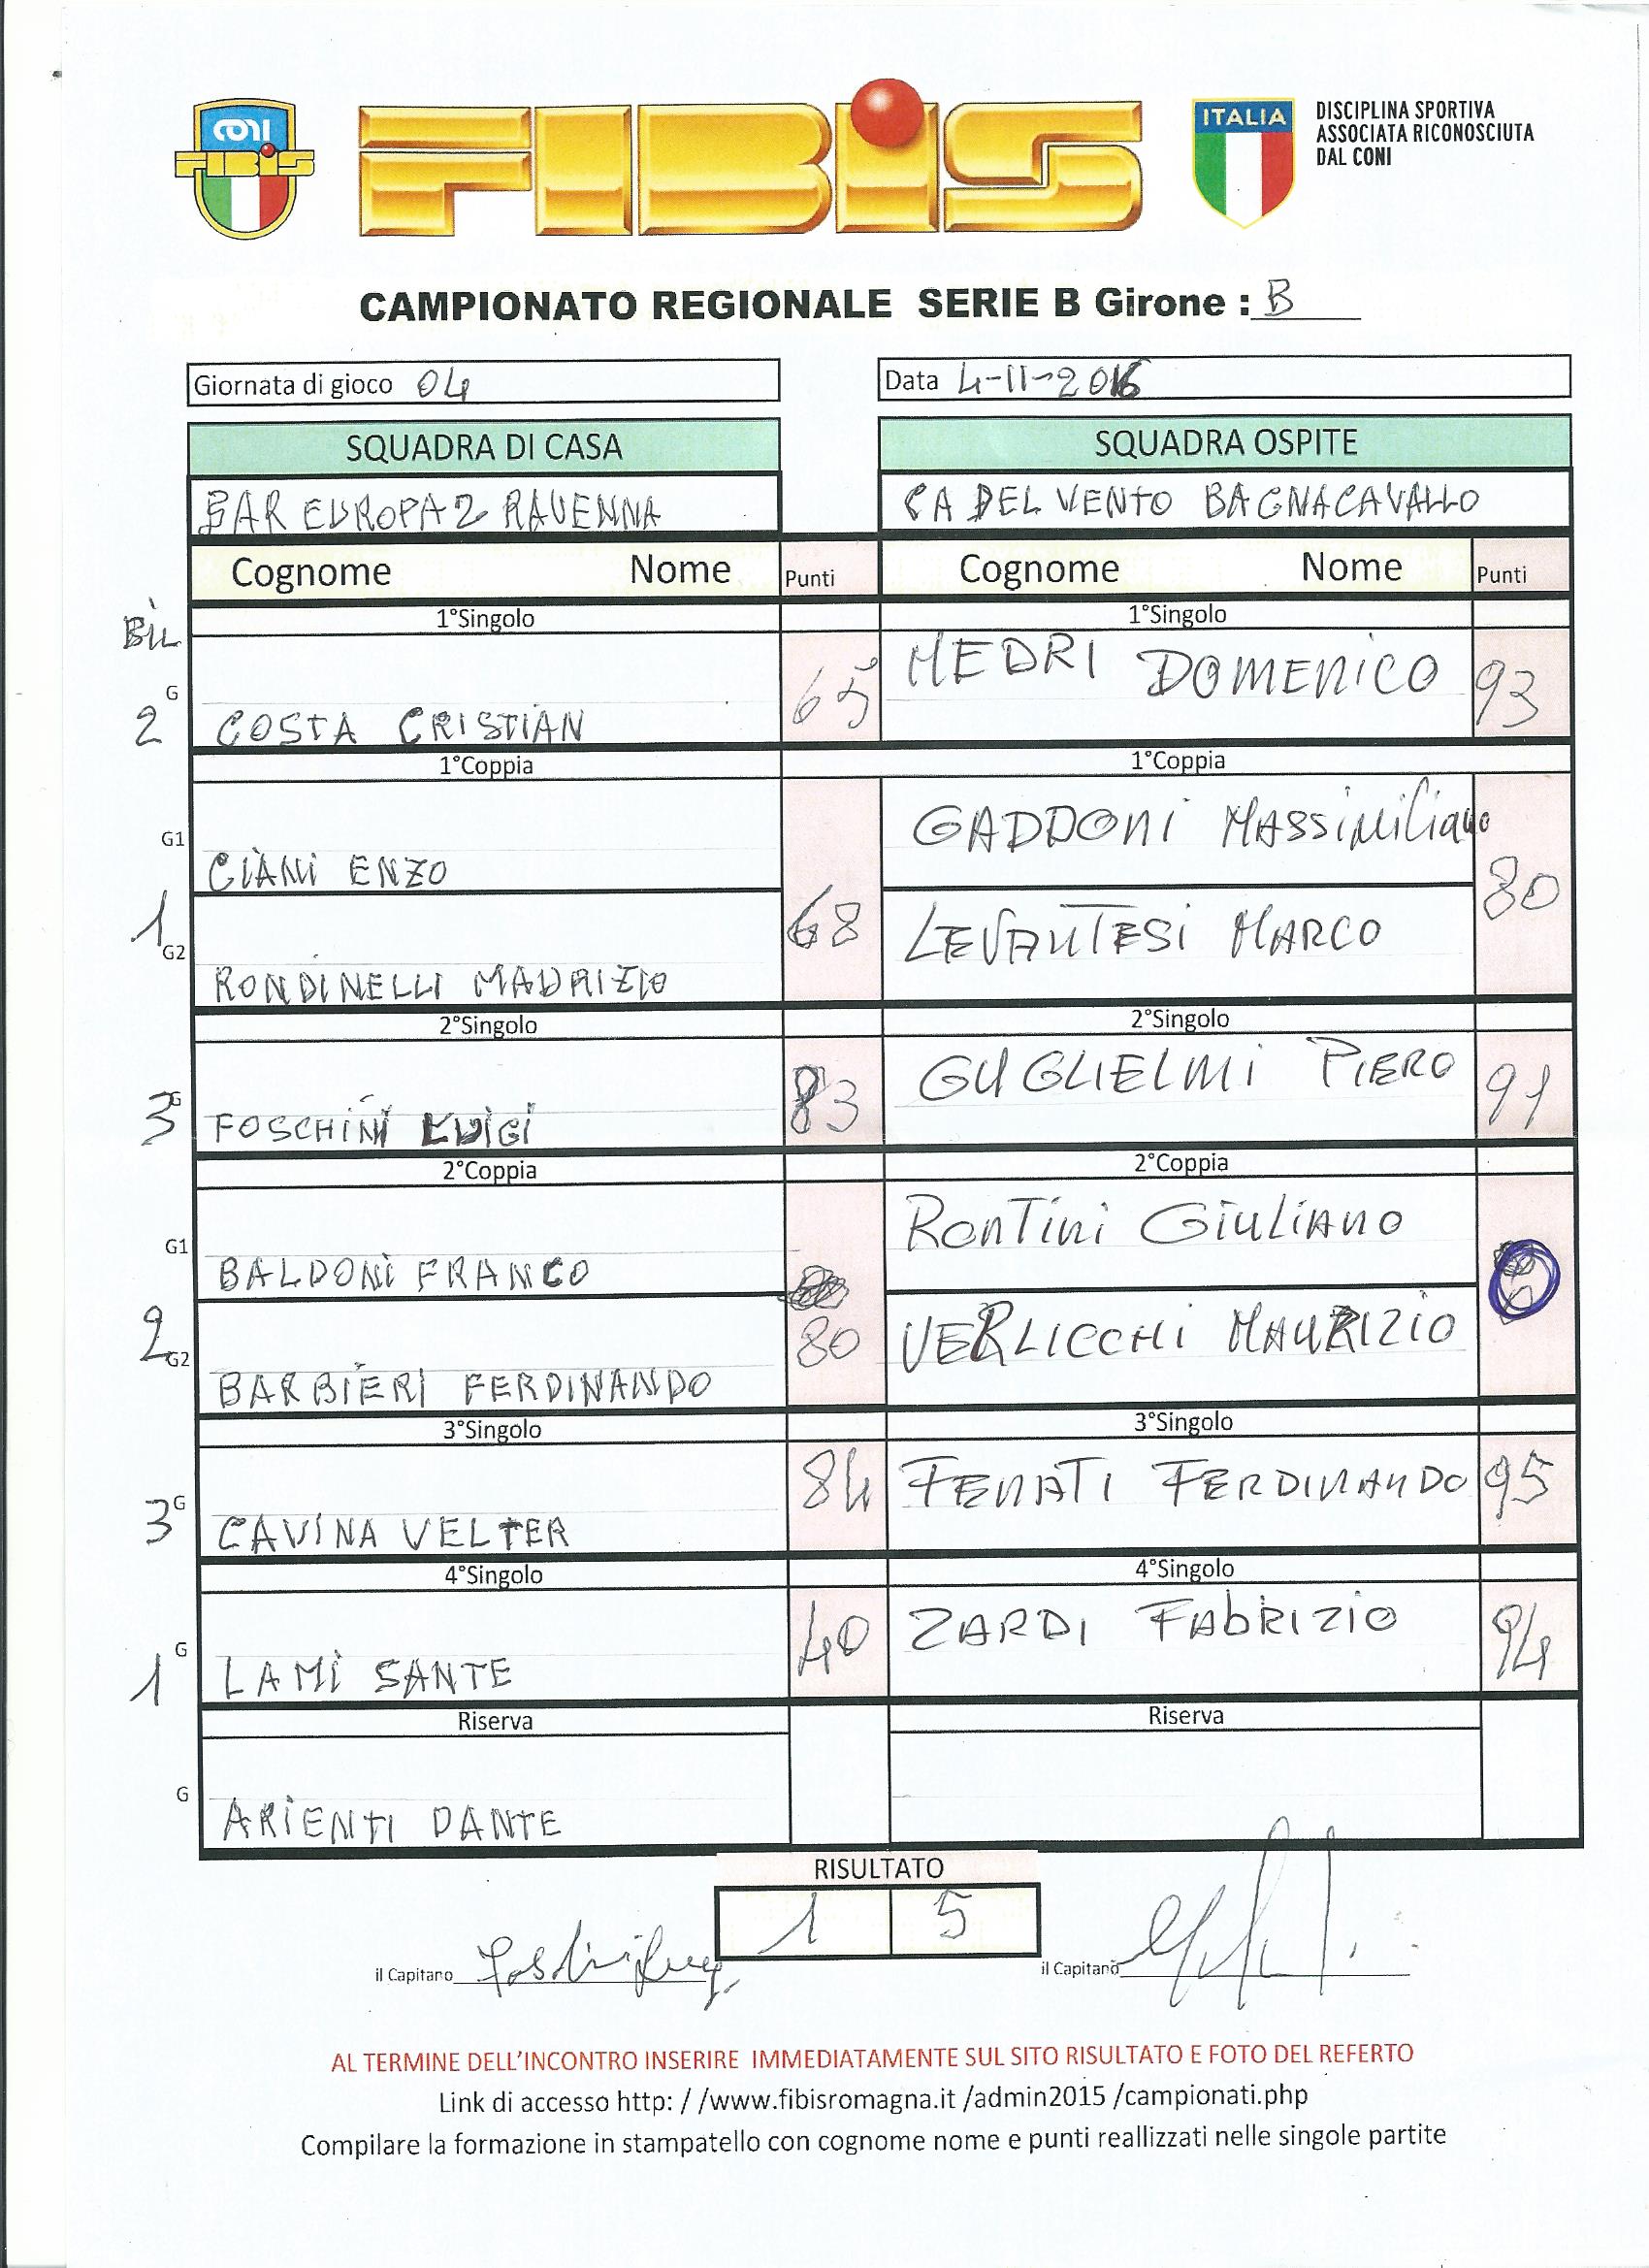 CONI
FIBIS
FIBIS
ITALIA
DISCIPLINA SPORTIVA
ASSOCIATA RICONOSCIUTA
DAL CONI
CAMPIONATO REGIONALE SERIE B Girone : B
Giornata di gioco 04
Data 4-11-2016
SQUADRA DI CASA
SQUADRA OSPITE
BAR EUROPA 2 RAVENNA
CA DEL VENTO BAGNACAVALLO
Cognome Nome Punti
Cognome Nome Punti
BIL
1°Singolo
1°Singolo
G
2
COSTA CRISTIAN 65
MEDRI DOMENICO 93
1°Coppia
1°Coppia
G1
CIANI ENZO
GADDONI MASSIMILIANO
1
G2
RONDINELLI MAURIZIO
68
LEVANTESI MARCO
80
2°Singolo
2°Singolo
G
3
FOSCHINI LUIGI 83
GUGLIELMI PIERO 91
2°Coppia
2°Coppia
G1
BALDONI FRANCO
RONTINI GIULIANO
2
G2
BARBIERI FERDINANDO
80
VERLICCHI MAURIZIO
3°Singolo
3°Singolo
G
3
CAVINA VELTER 84
FENATI FERDINANDO 95
4°Singolo
4°Singolo
G
1
LAMI SANTE 40
ZARDI FABRIZIO 94
Riserva
Riserva
G
ARIENTI DANTE
RISULTATO
1 5
il Capitano
il Capitano
AL TERMINE DELL'INCONTRO INSERIRE IMMEDIATAMENTE SUL SITO RISULTATO E FOTO DEL REFERTO
Link di accesso http: / /www.fibisromagna.it /admin2015 /campionati.php
Compilare la formazione in stampatello con cognome nome e punti reallizzati nelle singole partite